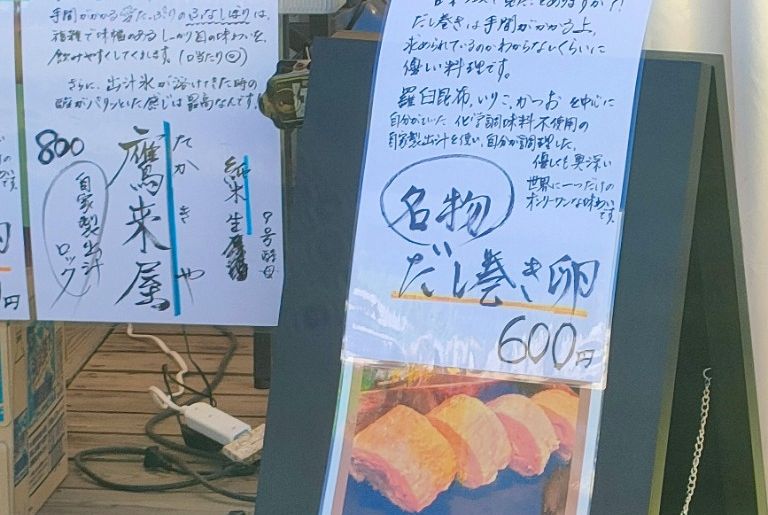 手間がかかる
複雑で味幅のあるしっかり目の味わいを、
飲みやすくしてくれます。
さらに、出汁氷が溶けてきた時の
感じは最高なんです。
800
自家製出汁
ロック
鷹来屋
たかきや
純米生原酒
9号酵母
だし巻きは手間がかかる上、
求められているのかわからないくらいに
優しい料理です。
羅臼昆布、いりこ、かつおを中心に
自分がひいた化学調味料不使用の
自家製出汁を使い、自分が調理した、
優しくも奥深い
世界に一つだけの
オンリーワンな味わいです。
名物
だし巻き卵
600円
円